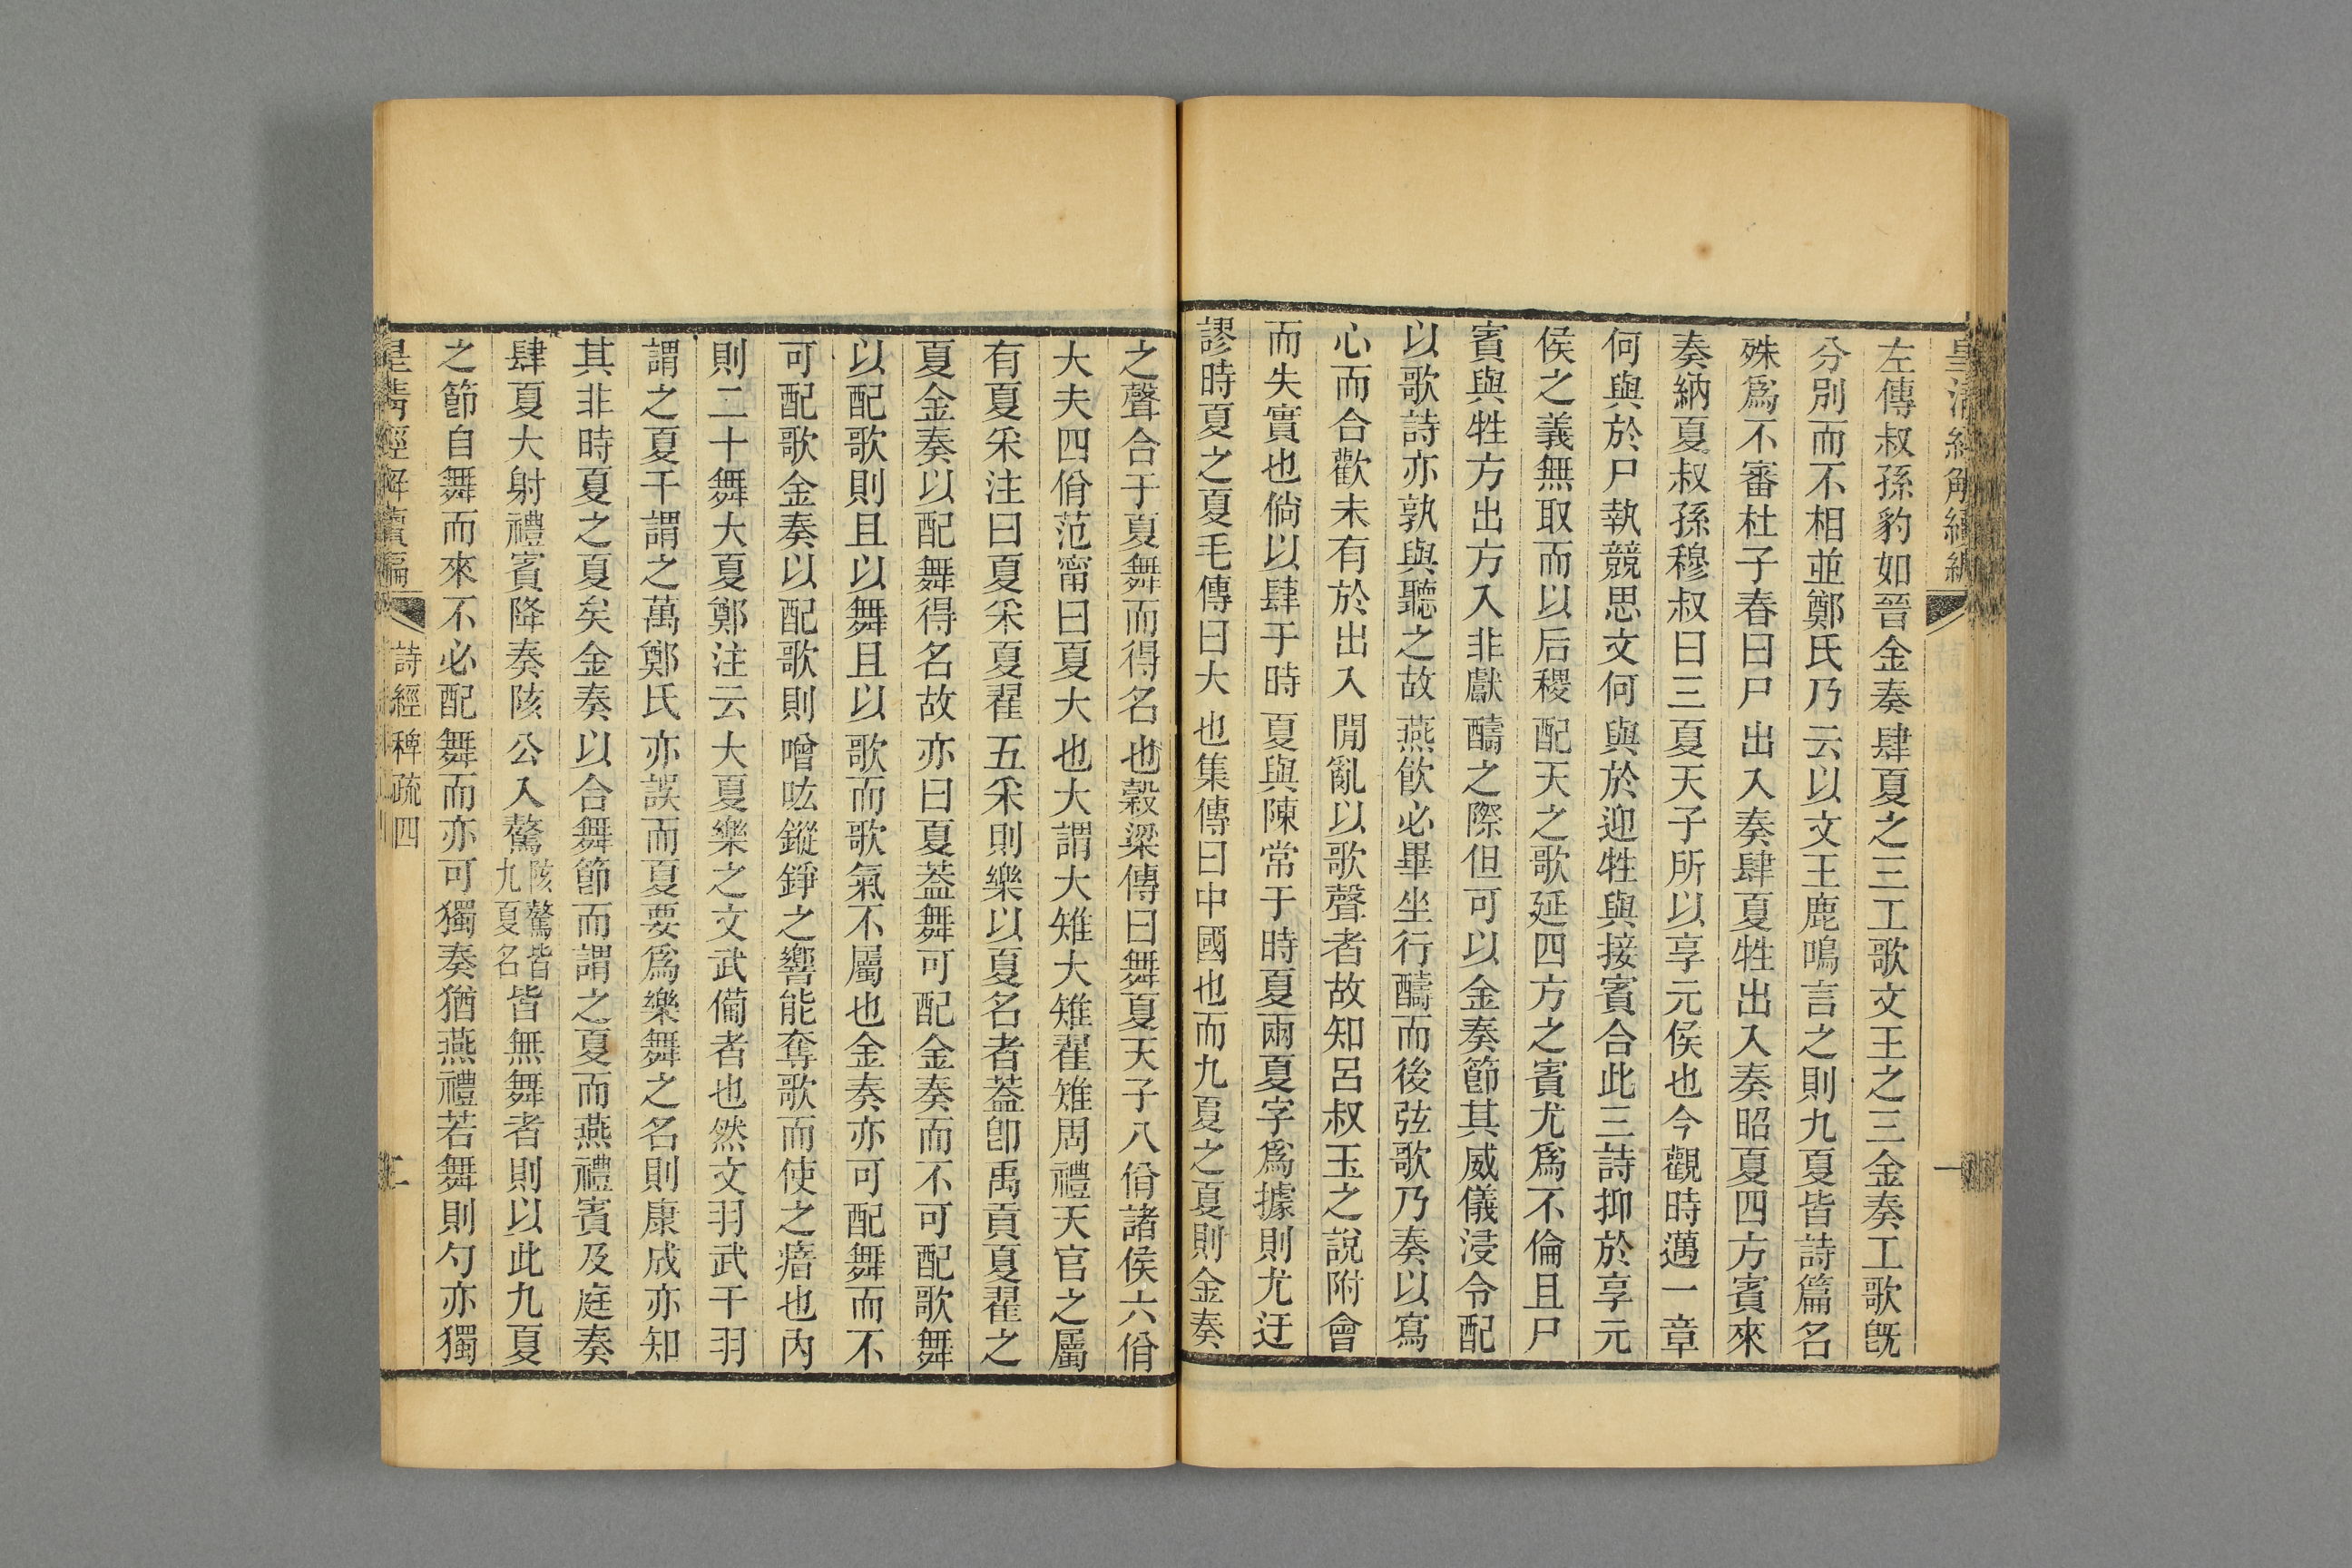 皇清經解續編
一
左傳叔孫豹如晉金奏肆夏之三工歌文王之三金奏工歌旣
分別而不相並鄭氏乃云以文王鹿鳴言之則九夏皆詩篇名
殊爲不審杜子春曰尸出入奏肆夏牲出入奏昭夏四方賓來
奏納夏叔孫穆叔曰三夏天子所以享元侯也今觀時邁一章
何與於尸執競思文何與於迎牲與接賓合此三詩抑於享元
侯之義無取而以后稷配天之歌延四方之賓尤爲不倫且尸
賓與牲方出方入非獻醻之際但可以金奏節其威儀浸令配
以歌詩亦孰與聽之故燕飮必畢坐行醻而後弦歌乃奏以寫
心而合歡未有於出入閒亂以歌聲者故知呂叔玉之說附會
而失實也倘以肆于時夏與陳常于時夏兩夏字爲據則尤迂
謬時夏之夏毛傳曰大也集傳曰中國也而九夏之夏則金奏
之聲合于夏舞而得名也穀梁傳曰舞夏天子八佾諸侯六佾
大夫四佾范甯曰夏大也大謂大雉大雉翟雉周禮天官之屬
有夏采注曰夏采夏翟五采則樂以夏名者葢卽禹貢夏翟之
夏金奏以配舞得名故亦曰夏葢舞可配金奏而不可配歌舞
以配歌則且以舞且以歌而歌氣不屬也金奏亦可配舞而不
可配歌金奏以配歌則噌吰鏦錚之響能奪歌而使之瘖也內
則二十舞大夏鄭注云大夏樂之文武備者也然文羽武干羽
謂之夏干謂之萬鄭氏亦誤而夏要爲樂舞之名則康成亦知
其非時夏之夏矣金奏以合舞節而謂之夏而燕禮賓及庭奏
肆夏大射禮賓降奏陔公入驁陔驁皆九夏名皆無舞者則以此九夏
之節自舞而來不必配舞而亦可獨奏猶燕禮若舞則勺亦獨
皇清經解續編
詩經稗疏四
二